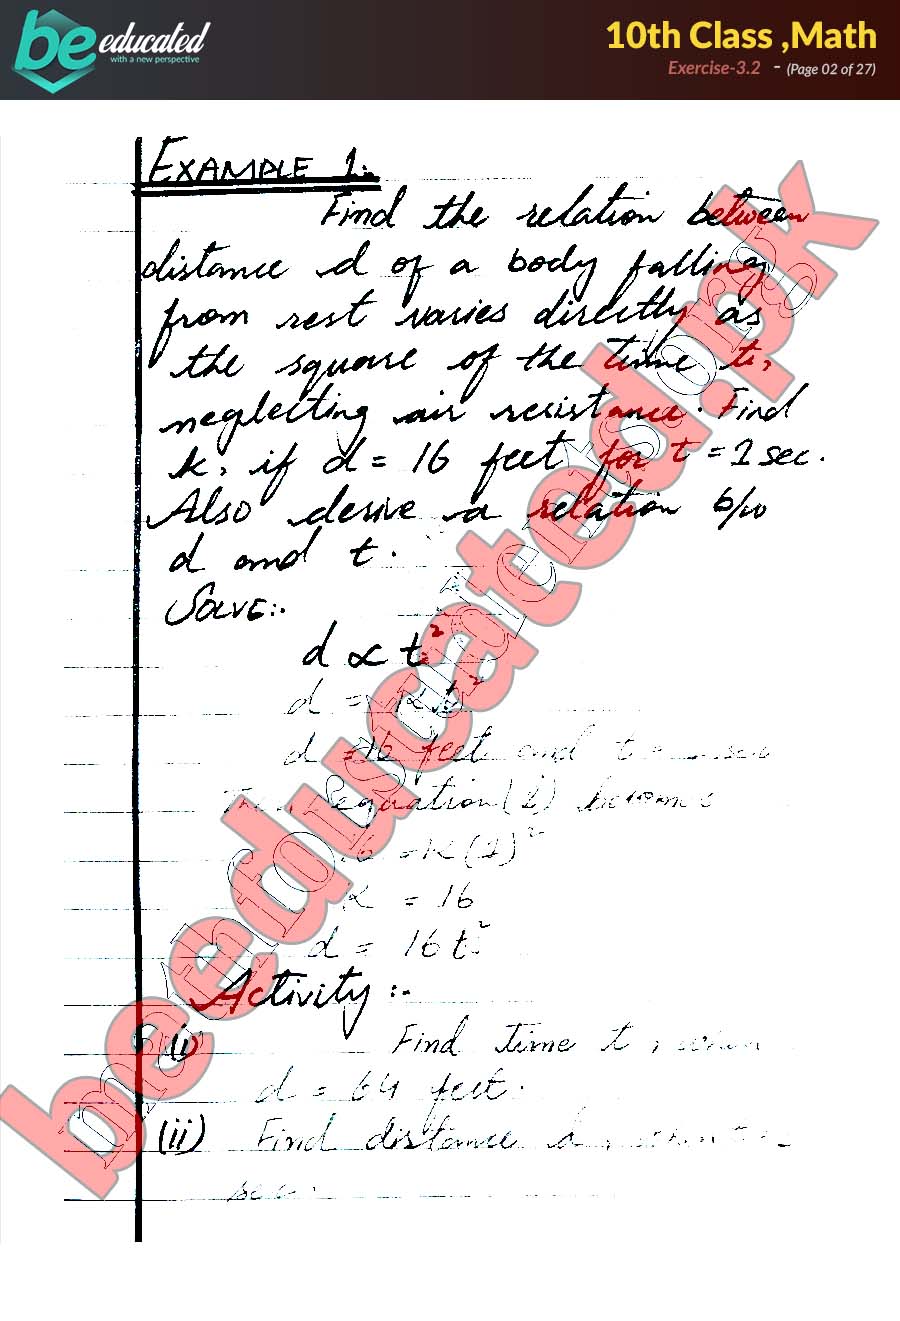 be educated
with a new perspective
10th Class ,Math
Exercise-3.2 - (Page 02 of 27)
EXAMPLE 1:-
Find the relation between
distance d of a body falling
from rest varies directly as
the square of the time t,
neglecting air resistance. Find
k, if d = 16 feet for t = 1 sec.
Also derive a relation b/w
d and t.
SOLVE:-
d ∝ t²
d = k t²
d = 16 feet and t =
equation (1) becomes
16 = k (1)²
k = 16
d = 16 t²
Activity :-
(i) Find time t, when
d = 64 feet.
(ii) Find distance d, when t =
sec.
beeducated.pk